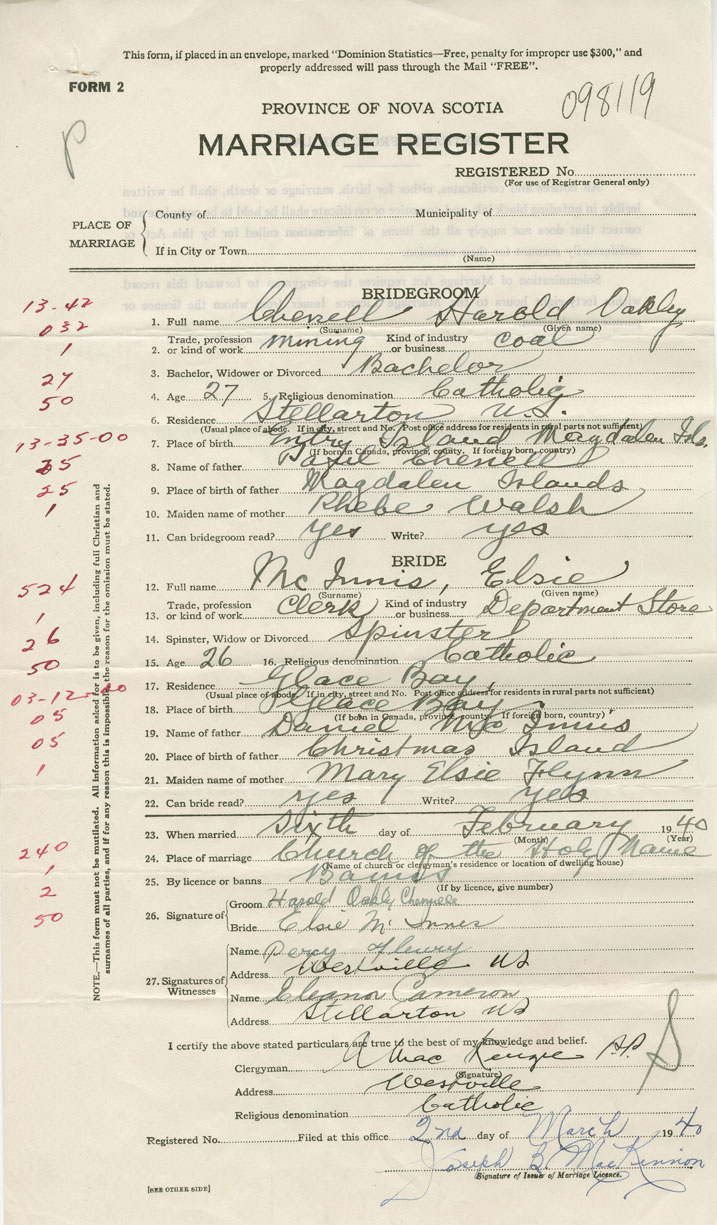 This form, if placed in an envelope, marked "Dominion Statistics—Free, penalty for improper use $300," and
properly addressed will pass through the Mail "FREE".
FORM 2
098119
P
PROVINCE OF NOVA SCOTIA
MARRIAGE REGISTER
REGISTERED No.
(For use of Registrar General only)
PLACE OF MARRIAGE
County of
Municipality of
If in City or Town
(Name)
BRIDEGROOM
13-42
1. Full name Chenell Harold Oakly
(Surname) (Given name)
032
Trade, profession Kind of industry
2. or kind of work mining or business Coal
1
3. Bachelor, Widower or Divorced Bachelor
27
4. Age 27 5. Religious denomination Catholic
50
6. Residence Stellarton N.S.
(Usual place of abode. If in city, street and No. Post office address for residents in rural parts not sufficient)
13-35-00
7. Place of birth Entry Island Magdalen Isls.
(If born in Canada, province, county. If foreign born, country)
35
8. Name of father Chenell
25
9. Place of birth of father Magdalen Islands
1
10. Maiden name of mother Phebe Walsh
11. Can bridegroom read? yes Write? yes
BRIDE
524
12. Full name Mc Innis, Elsie
(Surname) (Given name)
1
Trade, profession Kind of industry
13. or kind of work Clerk or business Department Store
26
14. Spinster, Widow or Divorced Spinster
50
15. Age 26 16. Religious denomination Catholic
17. Residence Glace Bay,
(Usual place of abode. If in city, street and No. Post office address for residents in rural parts not sufficient)
03-12-00
18. Place of birth Glace Bay
(If born in Canada, province, county. If foreign born, country)
05
19. Name of father Daniel Mc Innis
05
20. Place of birth of father Christmas Island
1
21. Maiden name of mother Mary Elsie Flynn
22. Can bride read? yes Write? yes
23. When married Sixth day of February 1940
(Month) (Year)
240
24. Place of marriage Church of the Holy Name
(Name of church or clergyman's residence or location of dwelling house)
1
25. By licence or banns Banns
(If by licence, give number)
2
50
26. Signature of
Groom Harold Oakly Chenell
Bride Elsie Mc Innis
27. Signatures of Witnesses
Name Percy Fleury
Address Westville NS
Name Eleanor Cameron
Address Stellarton NS
I certify the above stated particulars are true to the best of my knowledge and belief.
Clergyman A Mac Kenzie P.P.
(Signature)
Address Westville
Religious denomination Catholic
Registered No. Filed at this office 2nd day of March 1940
Joseph B. MacKinnon
Signature of Issuer of Marriage Licence.
[SEE OTHER SIDE]
NOTE.—This form must not be mutilated. All information asked for is to be given, including full Christian and
surnames of all parties, and if for any reason this is impossible the reason for the omission must be stated.